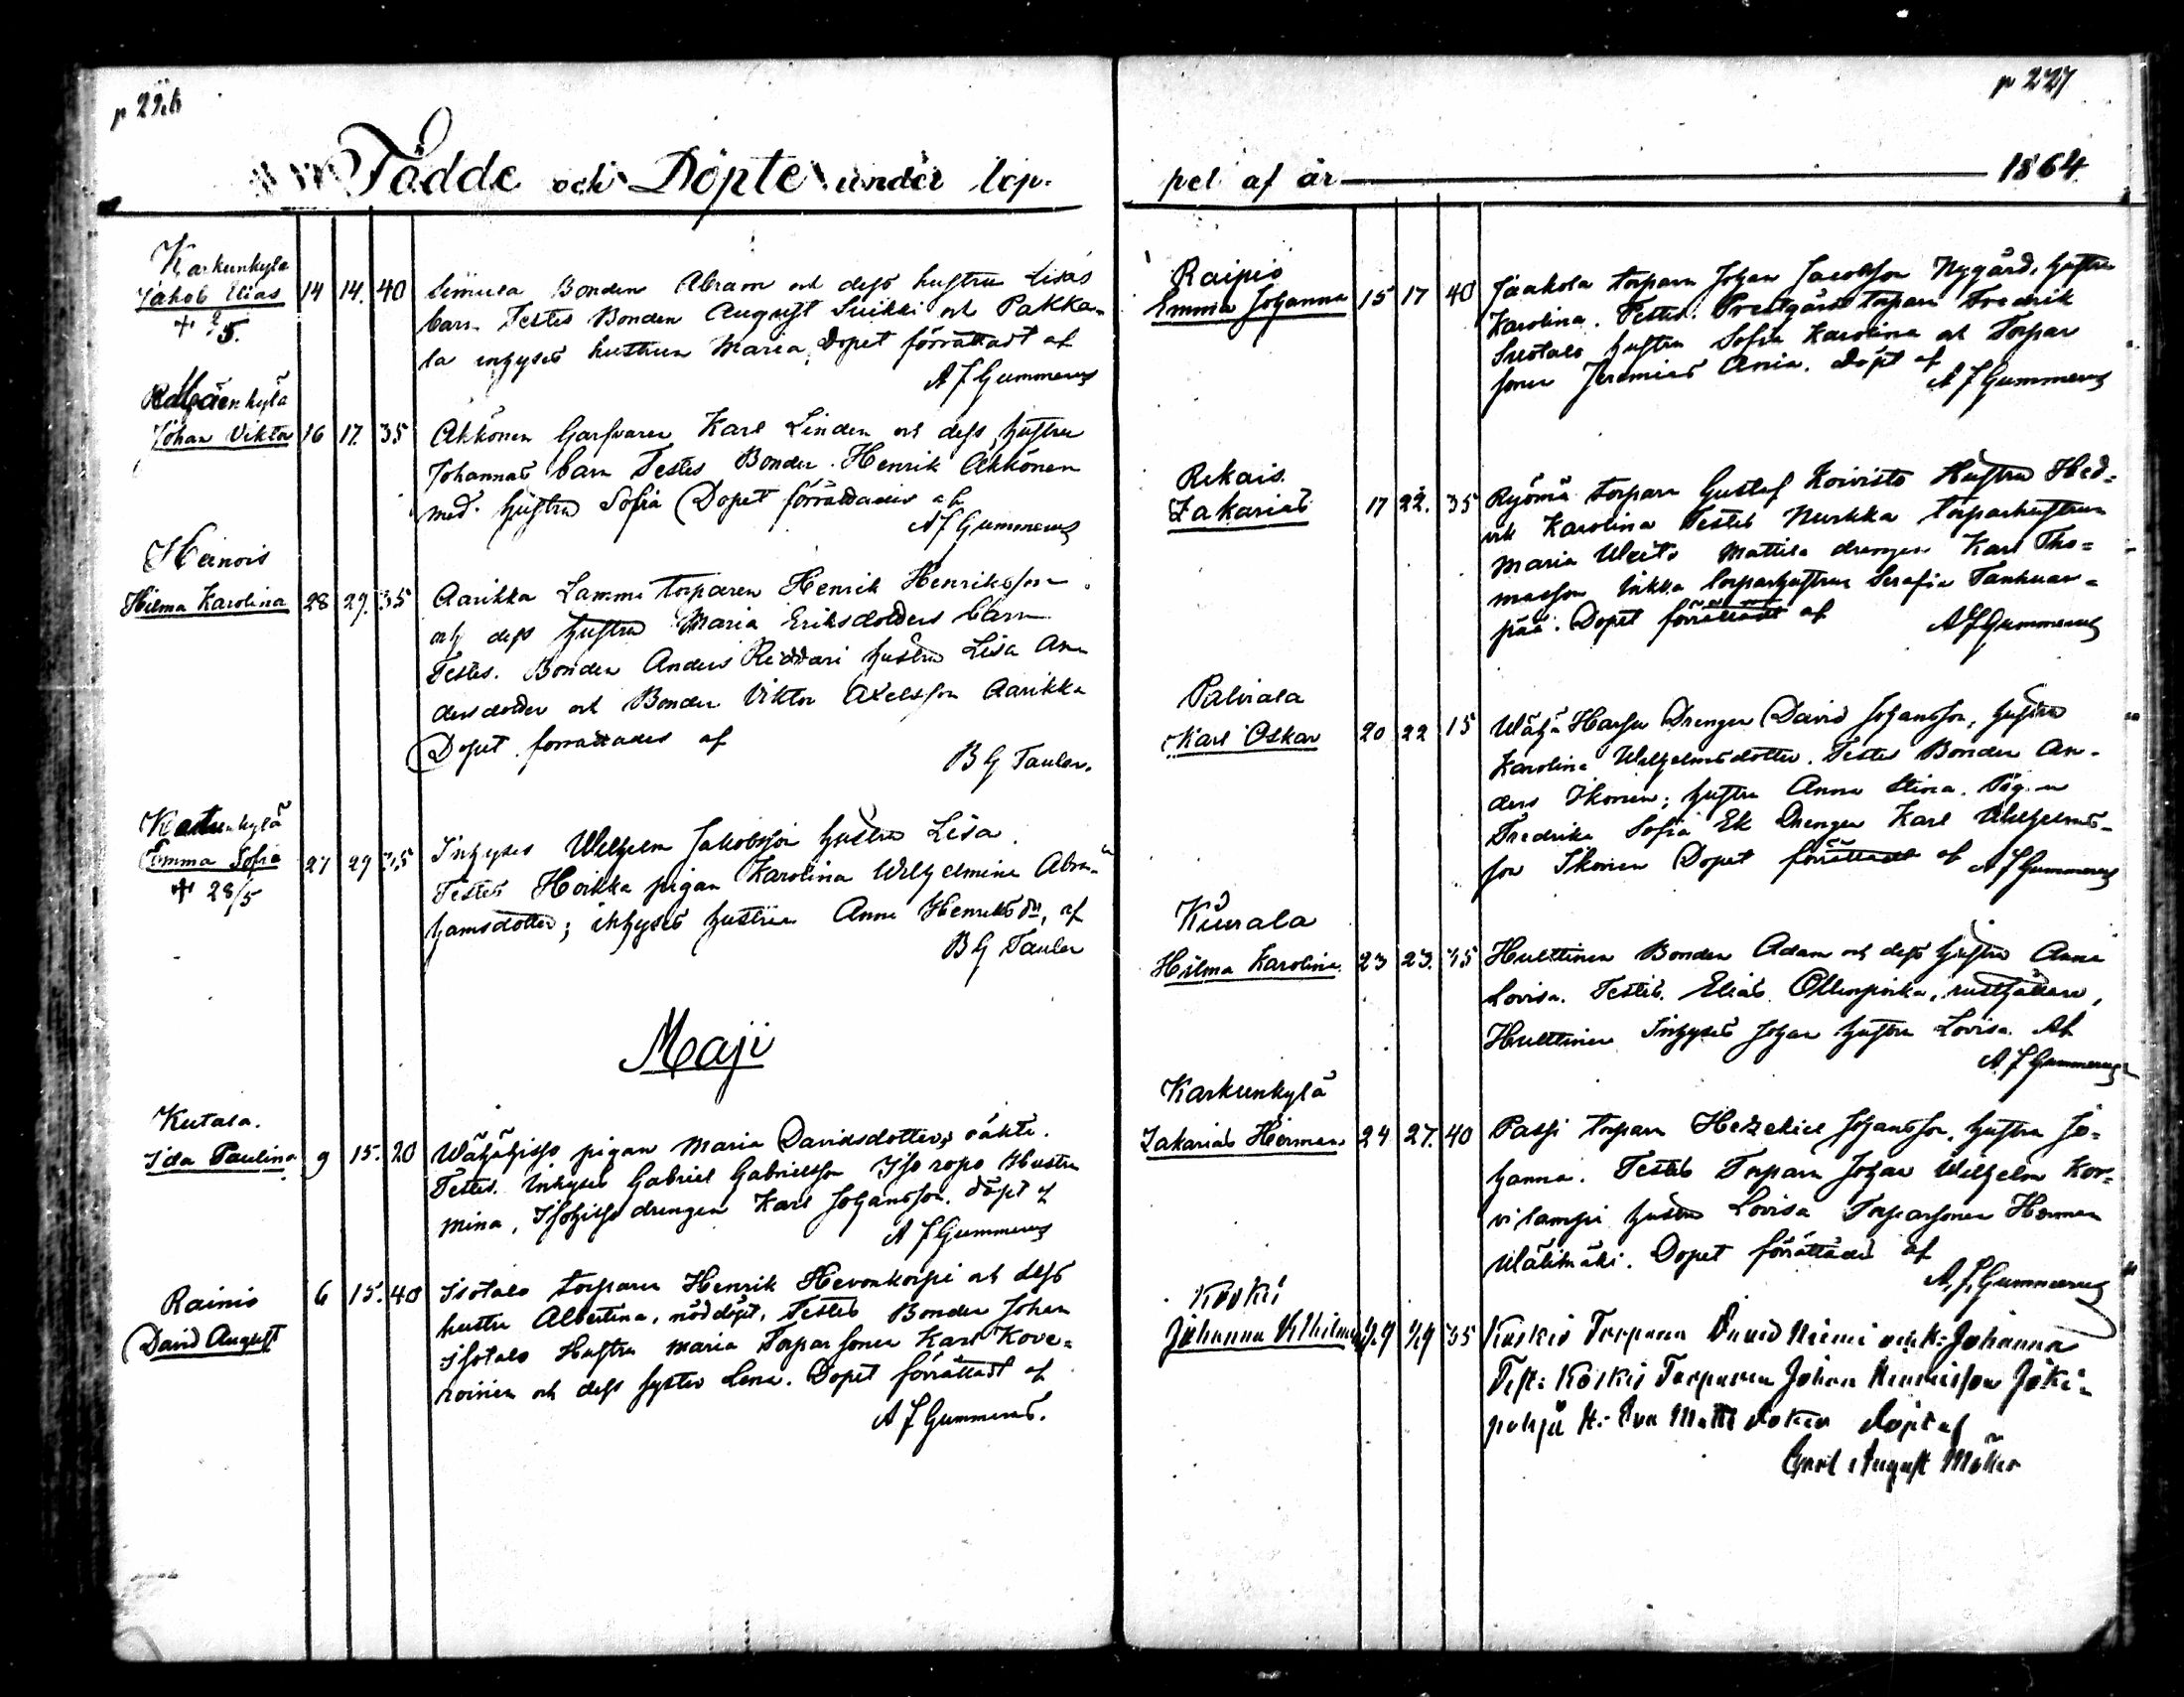 p 226
Födde och Döpte under lop-
Karkunkylä
Jakob Elias 14 14. 40 Simula Bonden Abram och dess hustru Lisas
+ 2/5. barn. Testes Bonden August Suikki och Pakka-
la inhyses hustrun Maria, Dopet förrättadt af
A F Gummerus
kylä
Johan Viktor 16 17. 35 Akkonen Garfvaren Karl Linden och dess hustru
Johannas barn Testes Bonden Henrik Akkonen
med hustru Sofia Dopet förrättades af
A F Gummerus
Heinois
Hilma Karolina 28 29. 35 Aarikka Lammi torparen Henrik Henriksson
och dess hustru Maria Eriksdotters barn
Testes. Bonden Anders Riddari hustru Lisa An-
dersdotter och Bonden Viktor Axelsson Aarikka
Dopet förrättades af
B G Tauler.
kylä
Emma Sofia 27 29 35 Inhyses Wilhelm Jakobsson hustru Lisa.
+ 28/5 Testes Hoikka pigan Karolina Wilhelmina Abra-
hamsdotter; inhyses hustrun Anna Henriksdr, af
B G Tauler
Maji
Kutala.
Ida Paulina 9 15. 20 Wähähisso pigan Maria Davidsdotters oäkta.
Testes. Inhyses Gabriel Gabrielsson Iso ropo Hustru
Mina, Isohisso drengen Karl Johansson. döpt af
A F Gummerus
Rainio 6 15. 40 Isotalo torparen Henrik Hevonkorpi och dess
David August hustru Albertina, nöddöpt. Testes Bonden Johan
Isotalo Hustru Maria Torparsonen Karl Kove-
roinen och dess syster Lena. Dopet förrättadt af
A F Gummerus.
p 227
pet af år 1864
Raipio
Emma Johanna 15 17 40 Jaakola torparn Johan Jacobsson Nygård, hustru
Karolina. Testes. Prestgårds torparn Fredrik
hustru Sofia Karolina och Torpar
sonen Jeremias Ania. döpt af
A F Gummerus
Rekais.
Zakarias 17 22. 35 Ryömä torparn Gustaf Koivisto Hustru Hed-
vik Karolina Testes Nurkka torparhustrun
Maria Mattila drengen Karl Tho-
masson torparhustrun Serafia Tanhuan-
pää. Dopet förrättadt af
A F Gummerus
Palviala
Karl Oskar 20 22 15 Wähä Harju Drengen David Johansson, hustru
Karolina Wilhelmsdotter. Testes Bonden An-
ders Ikonen; hustru Anna Stina. Pigan
Fredrika Sofia Ek Drengen Karl Wilhelms-
son Ikonen Dopet förrättadt af A F Gummerus
Kiurala
Hilma Karolina 23 23. 35 Hulttinen Bonden Adam och dess hustru Anna
Lovisa. Testes. Elias rusthållare,
Hulttinen Inhyses Johan hustru Lovisa. Af
A F Gummerus
Karkunkylä
Zakarias Herman 24 27. 40 Passi torparn Hezekiel Johansson, hustru Jo-
hanna. Testes Torparn Johan Wilhelm Kor-
vilampi hustru Lovisa Torparsonen Herman
Wälimäki. Dopet förrättades af
A. F. Gummerus
Koski
Johanna Vilhilmina 29 29 35 Koskis Torparen David Niemi och h: Johanna
Test: Koskis Torparen Johan Henricsson Joki-
pohja H: Eva Matts dotter döpt af
Carl August Molin